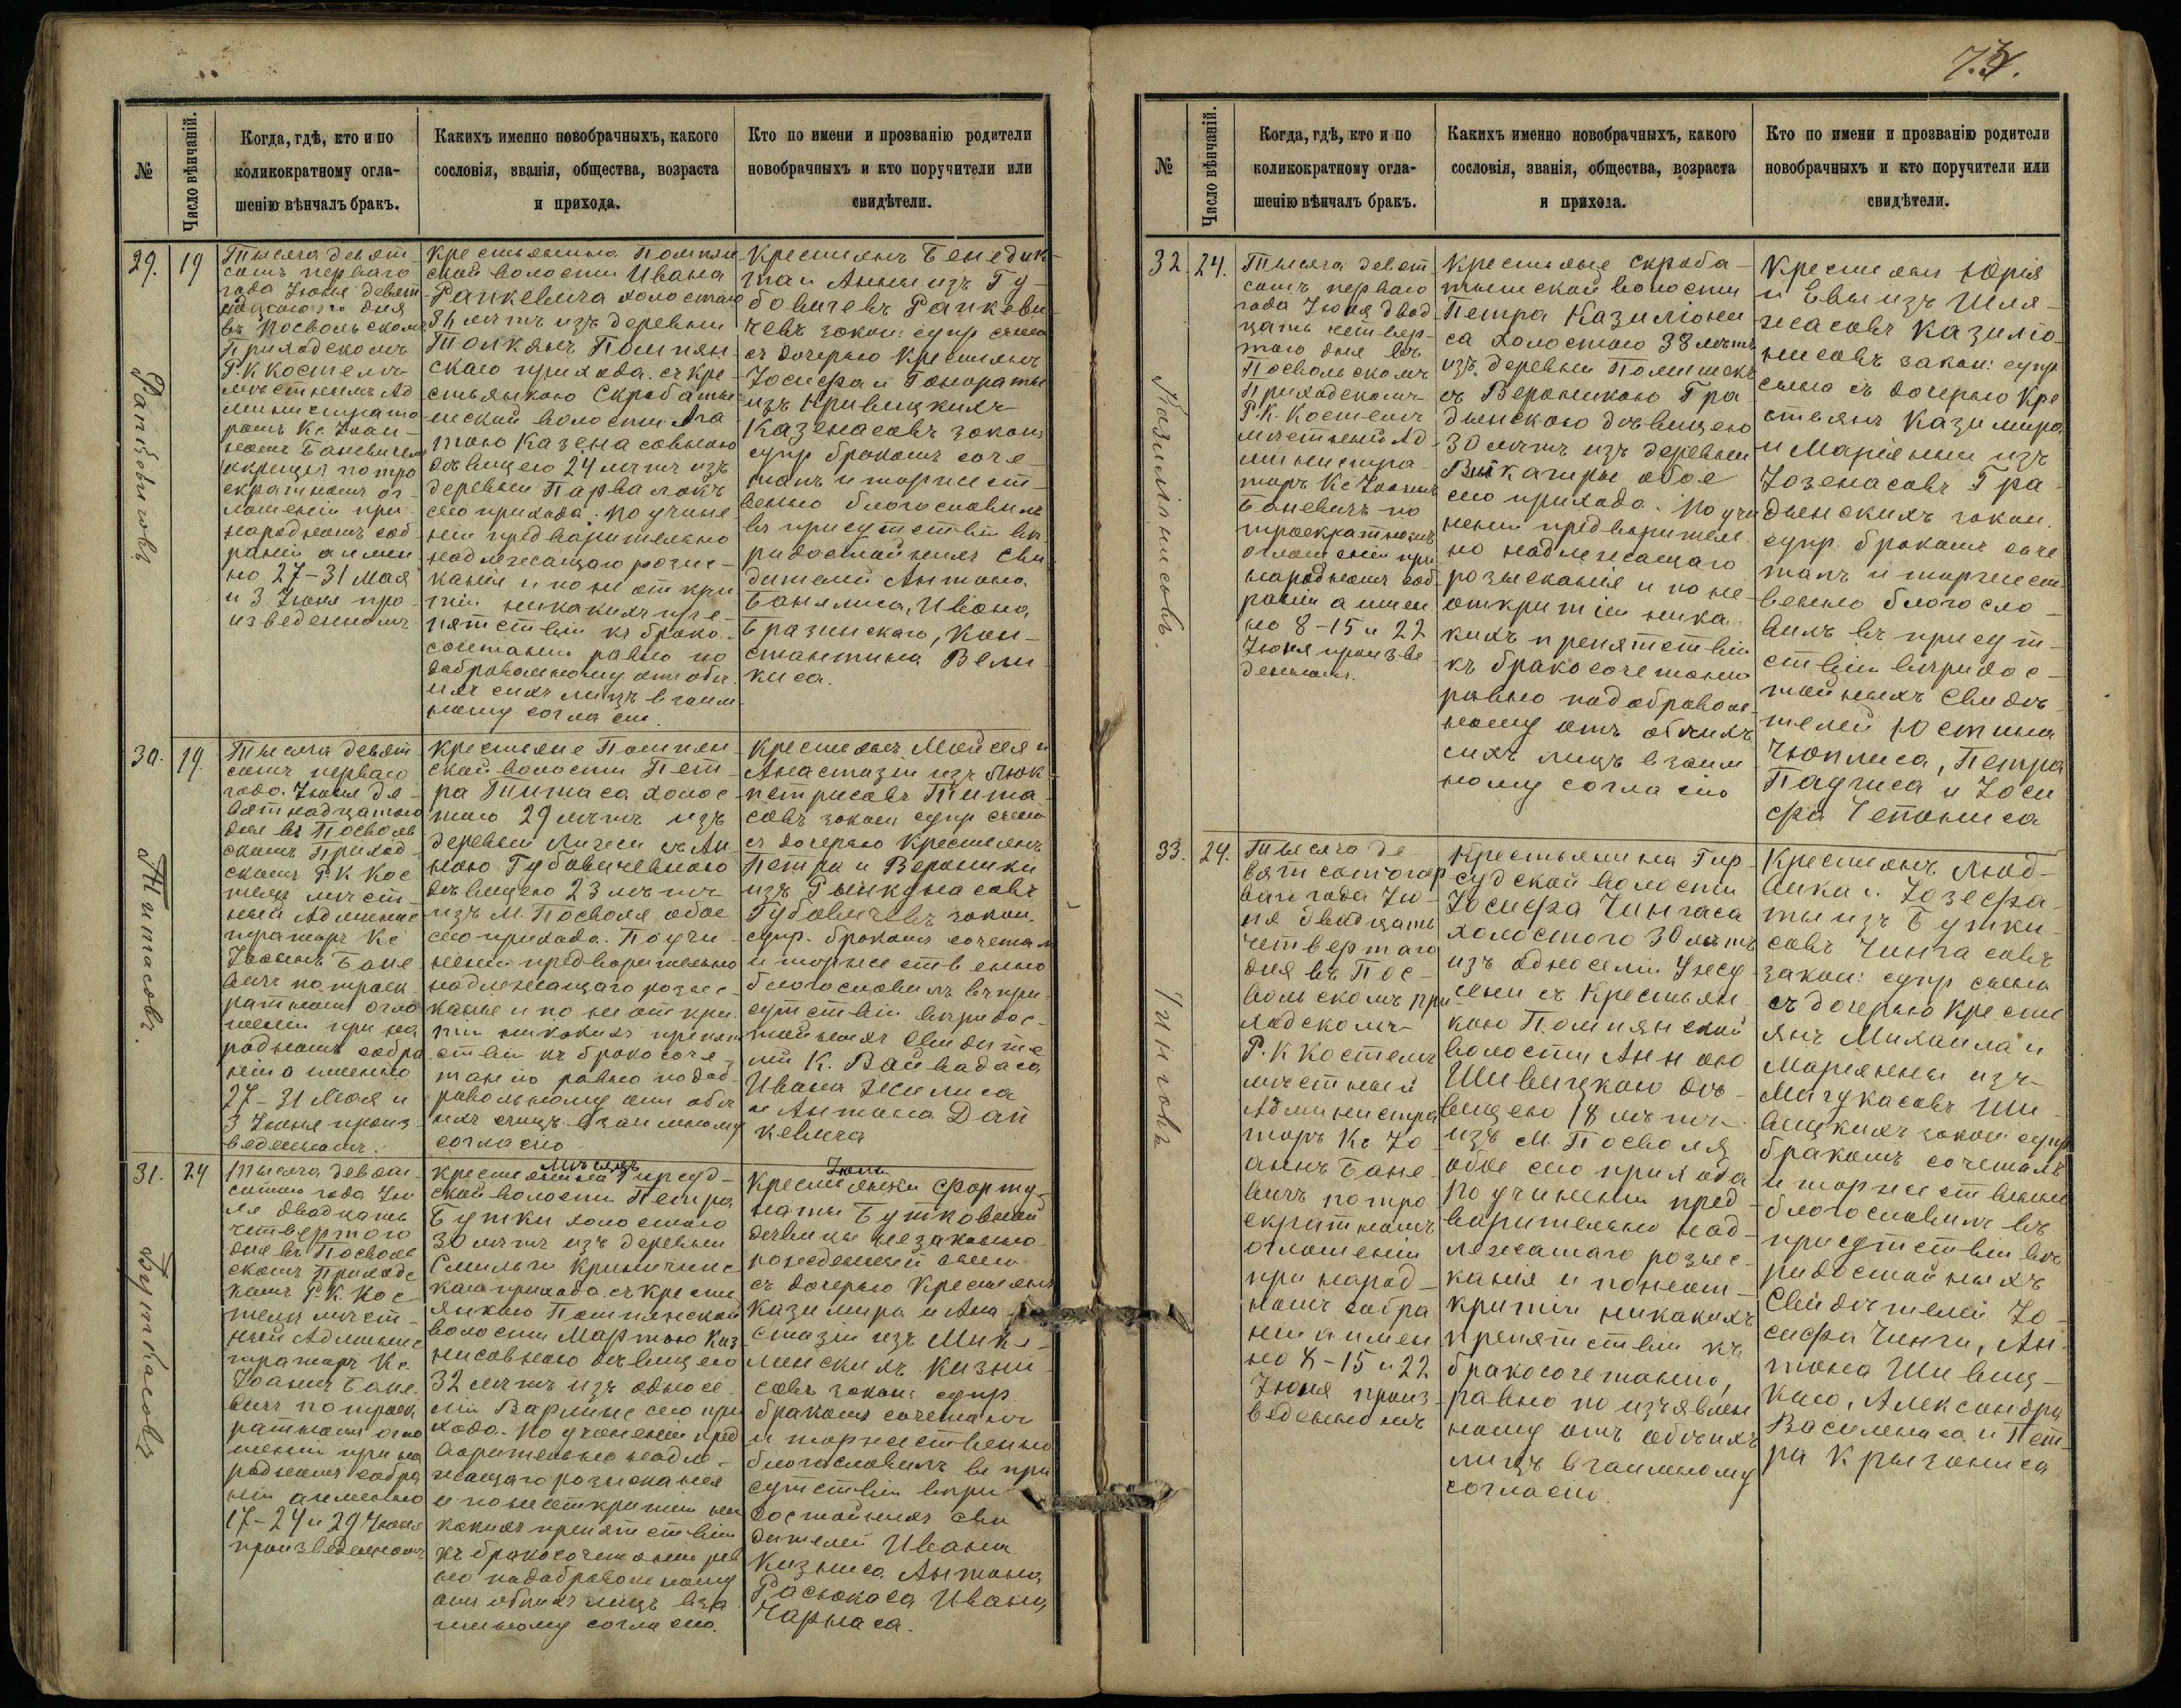 №
Число вѣнчаній.
Когда, гдѣ, кто и по
коликократному огла-
шенію вѣнчалъ бракъ.
Какихъ именно новобрачныхъ, какого
сословія, званія, общества, возраста
и прихода.
Кто по имени и прозванію родители
новобрачныхъ и кто поручители или
свидѣтели.
29.
19
Тысяча девят
сотъ перваго
года Іюня девят
надцатаго дня
въ Посвольскомъ
Приходскомъ
Р. К костелѣ
мѣстнымъ Ад
министрато
ромъ Кс Іоан-
номъ Баневичемъ
по тро
екратномъ ог-
лашеніи при
народномъ соб
раніи а имен
но 27-31 Мая
и 3 Іюня про
изведенномъ
крестьянина Помпян
ской волости Ивана
Рапкевича холостаго
34 лѣтъ изъ деревни
Толкянъ Помпян
скаго прихода съ кре
стьянкою Скробатын
нской волости Ага
тою Казенасовною
дѣвицею 24 лѣтъ изъ
деревни Парвалокъ
сего прихода. По учине
ніи предварительно
надлежащаго розыс-
канія и по не откры
тіи никакихъ пре-
пятствій къ брако-
сочетанію равно по
добровольному отъ обо
ихъ сихъ лицъ взаим
ному согласію.
Крестьянъ Бенедик-
та и Анны изъ Гу-
бовичевъ Рапкеви
чевъ закон: супр сына
съ дочерью Крестьянъ
Іосифа и Гонораты
изъ Кривицкихъ
Казенасовъ закон:
супр бракомъ соче-
талъ и торжест-
венно благословилъ
въ присутствіи вѣ
родостойныхъ сви
дѣтелей Антона
Банялиса, Ивана
Бразинскаго, Кон-
стантина Вели
киса.
30.
19.
Тысяча девят
сотъ перваго
года Іюня де-
вятнадцатаго
дня въ Посволь
скомъ Приход
скомъ Р. К Кос
телѣ мѣст-
ный Админис
траторъ Кс
Іоаннъ Бане
вичъ по троек
ратномъ огла
шеніи при на
родномъ собра
ніи а именно
27-31 Мая и
3 Іюня произ
веденномъ.
Титасовъ.
крестьяне Помпян
ской волости Пет-
ра Титаса холос
таго 29 лѣтъ изъ
деревни съ Ан
ною Губовичевною
дѣвицею 23 лѣтъ
изъ М. Посволя обое
сего прихода. По учи
неніи предварительно
надлежащаго розыс-
канія и по не откры
тіи никакихъ препят
ствій къ бракосоче
танію равно по доб
ровольному отъ обо
ихъ лицъ взаимному
согласію
Крестьянъ Мойсея и
Анастазіи изъ Люк
петрисовъ Тита
совъ закон супр сына
съ дочерью Крестьянъ
Петра и Вероники
изъ Рынкунасовъ
Губовичевъ закон.
супр. бракомъ сочеталъ
и торжественно
благословилъ въ при
сутствіи вѣродос-
тойныхъ свидѣте
лей К. Вайвадаса
Ивана Жилиса
и Антона Дай
кевича
31.
24
Тысяча девять
сотаго года Ію
ля двадцать
четвертого
дня въ Посволь
скомъ Приходс
комъ Р. К. Кос
телѣ мѣст-
ный Админис
траторъ Кс.
Іоаннъ Бане
вичъ по троек
ратномъ огла
шеніи при на
родномъ собра
ніи а именно
17-24 и 29 Іюня
произведенномъ
Буткасовъ
крестьянина Гирсуд-
ской волости Петра
Бутки холостаго
30 лѣтъ изъ деревни
Смильги Криничинс
каго прихода съ крестья
янкою Помпянской
волости Мартою Каз
нисовною дѣвицею
32 лѣтъ изъ односе
ліи Варлине сего при
хода. По учиненіи пред
варительно надле-
жащаго розысканія
и по не открытіи ни
какихъ препятствій
къ бракосочетанію рав
но по добровольному
отъ обоихъ лицъ вза
имному согласію.
Крестьянки Форту
наты Бутковной
дѣвицы незаконно
рожденный сына
съ дочерью Крестьянъ
Казимира и Ана
стазіи изъ Мик-
линскихъ Казни
совъ закон: супр
бракомъ сочеталъ
и торжественно
благословилъ въ при
сутствіи вѣро
достойныхъ сви
дѣтелей Ивана
Казниса Антона
Расюкаса Ивана
Чарнаса.
№
Число вѣнчаній.
Когда, гдѣ, кто и по
коликократному огла-
шенію вѣнчалъ бракъ.
Какихъ именно новобрачныхъ, какого
сословія, званія, общества, возраста
и прихода.
Кто по имени и прозванію родители
новобрачныхъ и кто поручители или
свидѣтели.
32.
24.
Тысяча девят
сотъ перваго
года Іюня двад
цать четвер-
таго дня въ
Посвольскомъ
Приходскомъ
Р. К. Костелѣ
мѣстный Ад
министра-
торъ Кс Іоаннъ
Баневичъ по
троекратномъ
оглашеніи при
народномъ соб
раніи а имен
но 8-15 и 22
Іюня произве
денномъ.
Казиліонисовъ.
Крестьяне скроба-
тынской волости
Петра Казиліони
са холостого 38 лѣтъ
изъ деревни Помишекъ
съ Вероникою Гра
дынскою дѣвицею
30 лѣтъ изъ деревни
обое
сего прихода. По учи
неніи предварител
но надлежащаго
розысканія и по не-
открытіи ника-
кихъ препятствій
къ бракосочетанію
равно по доброволь
ному отъ обоихъ
сихъ лицъ взаим
ному согласію
Крестьян Юрія
и Евы изъ Шля-
жасовъ Казилю-
нисовъ закон: супр
сына съ дочерью Кре
стьянъ Казимира
и Маріянны изъ
Іозенасовъ Гра
дынскихъ закон.
супр. бракомъ соче
талъ и торжест
венно благосло-
вилъ въ присут-
ствіи вѣродос-
тойныхъ Свидѣ-
телей Юстина
Чюплиса, Петра
Падчиса и Іоси
фа Чепониса
33.
24.
Тысяча де
вятсотъ пер
ваго года Ію-
ня двадцать
четвертаго
дня въ Пос-
вольскомъ При
ходскомъ
Р. К Костелѣ
мѣстный
Администра
торъ Кс Іо
аннъ Бане-
вичъ по тро
екратномъ
оглашеніи
при народ-
номъ собра
ніи а имен
но 8-15 и 22
Іюня произ-
веденномъ
Чинговъ
Крестьянина Гир-
судской волости
Іосифа Чингаса
холостого 30 лѣтъ
изъ односеліи
съ Крестьян
кою Помпянской
волости Анною
Шивицкою дѣ-
вицею 18 лѣтъ
изъ М. Посволя
обое сего прихода
По учиненіи пред-
варительно над-
лежащаго розыс-
канія и по неот-
крытіи никакихъ
препятствій къ
бракосочетанію,
равно по изъявлен
ному отъ обоихъ
лицъ взаимному
согласію.
Крестьянъ Люд-
вика и Іозефа-
ты изъ Бутки-
совъ Чингасовъ
закон: супр сына
съ дочерью Кресть
янъ Михаила и
Маріянны изъ
Мичукасовъ Ши-
вицкихъ закон супр
бракомъ сочеталъ
и торжественно
благословилъ въ
присутствіи вѣ
родостойныхъ
Свидѣтелей Іо-
сифа Чинги, Ан-
тона Шивиц-
каго, Александра
Василенаса и Пет-
ра Крыгониса